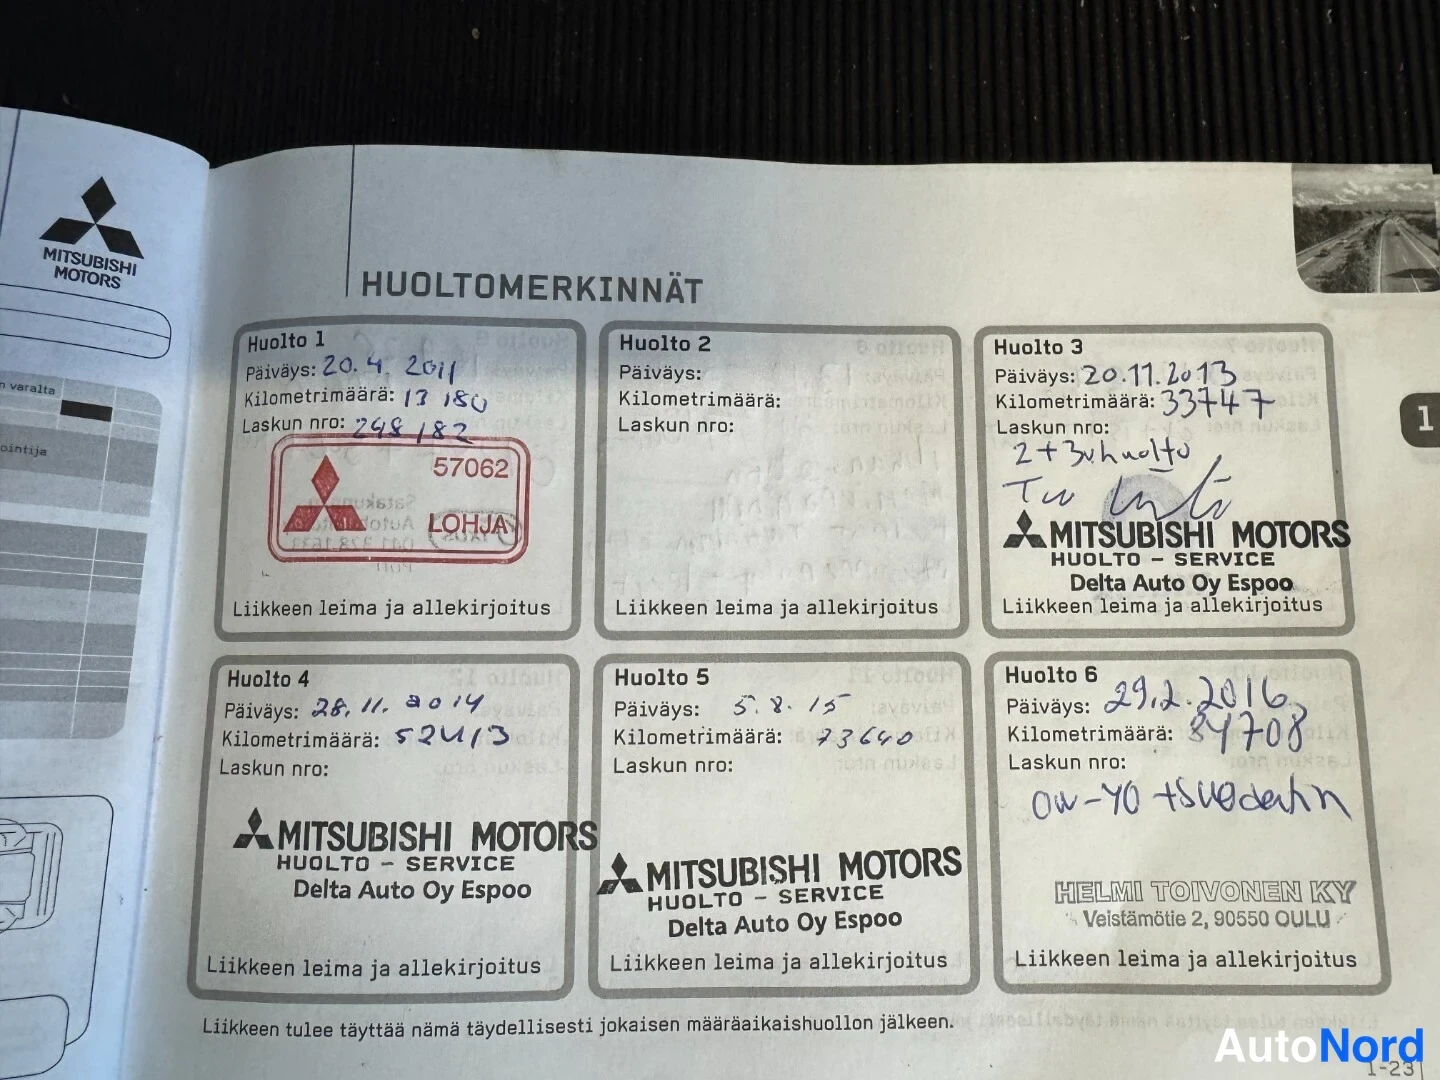 MITSUBISHI
MOTORS
n varalta
ointija
HUOLTOMERKINNÄT
Huolto 1
Päiväys: 20.4.2011
Kilometrimäärä: 13 180
Laskun nro: 248182
57062
LOHJA
Liikkeen leima ja allekirjoitus
Huolto 2
Päiväys:
Kilometrimäärä:
Laskun nro:
Liikkeen leima ja allekirjoitus
Huolto 3
Päiväys: 20.11.2013
Kilometrimäärä: 33747
Laskun nro:
2+3v huolto
MITSUBISHI MOTORS
HUOLTO - SERVICE
Delta Auto Oy Espoo
Liikkeen leima ja allekirjoitus
1
Huolto 4
Päiväys: 28.11.2014
Kilometrimäärä: 52413
Laskun nro:
MITSUBISHI MOTORS
HUOLTO - SERVICE
Delta Auto Oy Espoo
Liikkeen leima ja allekirjoitus
Huolto 5
Päiväys: 5.8.15
Kilometrimäärä: 73640
Laskun nro:
MITSUBISHI MOTORS
HUOLTO - SERVICE
Delta Auto Oy Espoo
Liikkeen leima ja allekirjoitus
Huolto 6
Päiväys: 29.2.2016
Kilometrimäärä: 84708
Laskun nro:
HELMI TOIVONEN KY
Veistämötie 2, 90550 OULU
Liikkeen leima ja allekirjoitus
Liikkeen tulee täyttää nämä täydellisesti jokaisen määräaikaishuollon jälkeen.
AutoNord
1-23